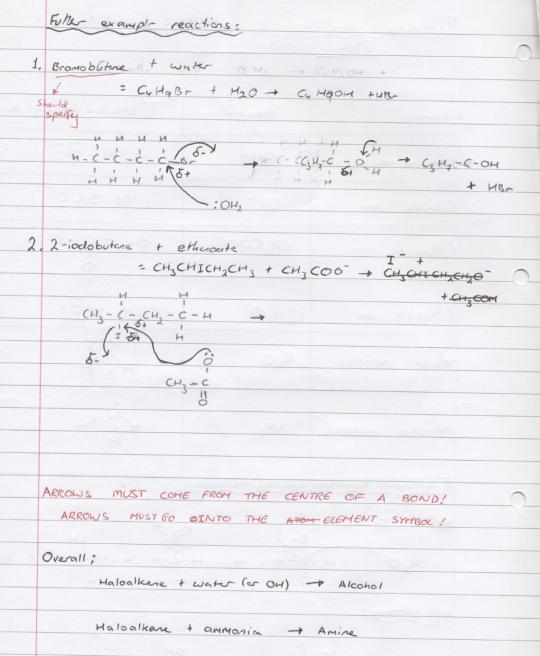 Futher example reactions:
1. Bromobutane + water
= C4H9Br + H2O → C4H9OH + HBr
Should specify
H H H H
H - C - C - C - C - Br δ- → C3H7 - C - O H → C3H7 - C - OH
δ+ δ+ H + HBr
H H H H
:OH2
2. 2-iodobutane + ethanoate
I- +
= CH3CHICH2CH3 + CH3COO- → CH3CHICH2CH2O-
+ CH3COH
H H
CH3 - C - CH2 - C - H →
δ+
I H
δ-
O
CH3 - C
O
ARROWS MUST COME FROM THE CENTRE OF A BOND!
ARROWS MUST GO INTO THE ATOM ELEMENT SYMBOL!
Overall;
Haloalkene + water (or OH) → Alcohol
Haloalkane + ammonia → Amine